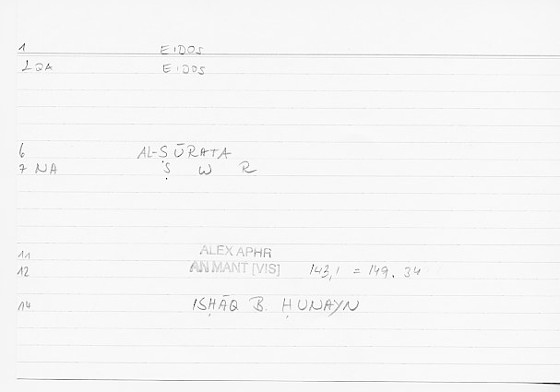 1 EIDOS
2 OA EIDOS
6 AL-ṢŪRATA
7 NA Ṣ W R
11 ALEX APHR
12 AN.MANT [VIS] 143,1 = 149, 34
14 ISḤĀQ B. ḤUNAYN